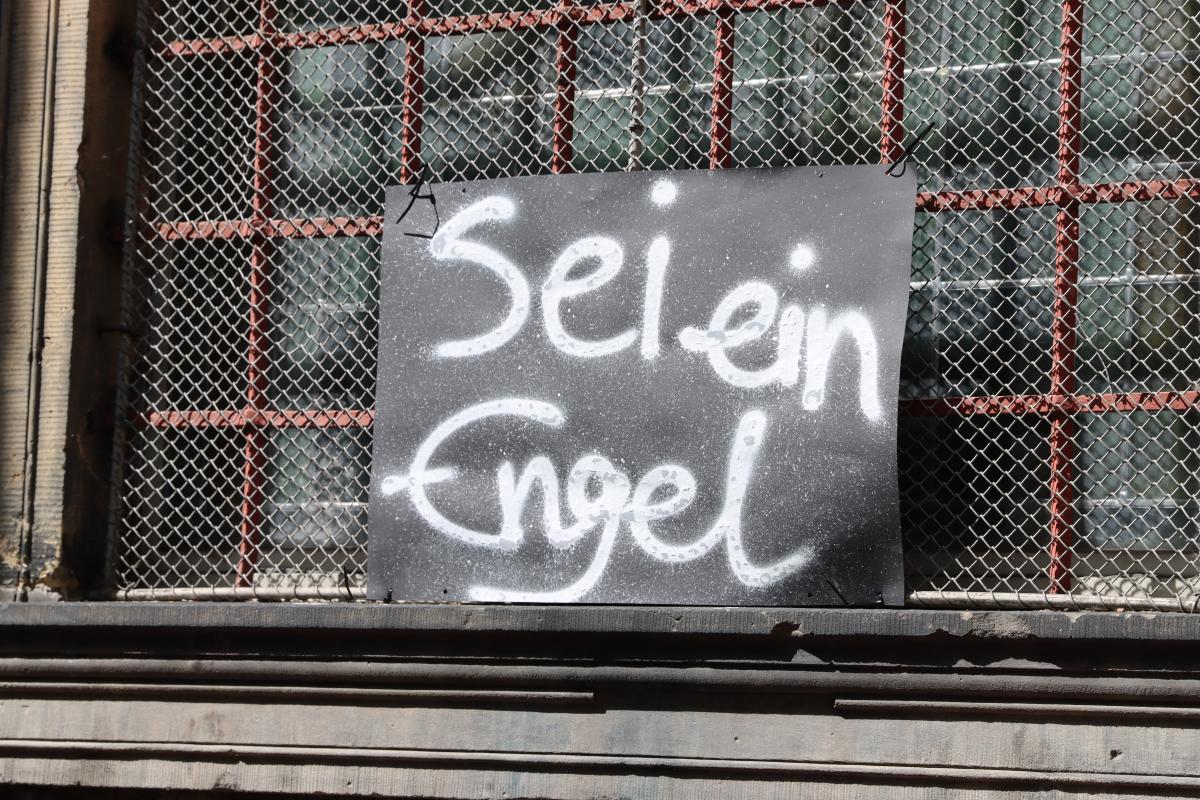 Sei ein
Engel